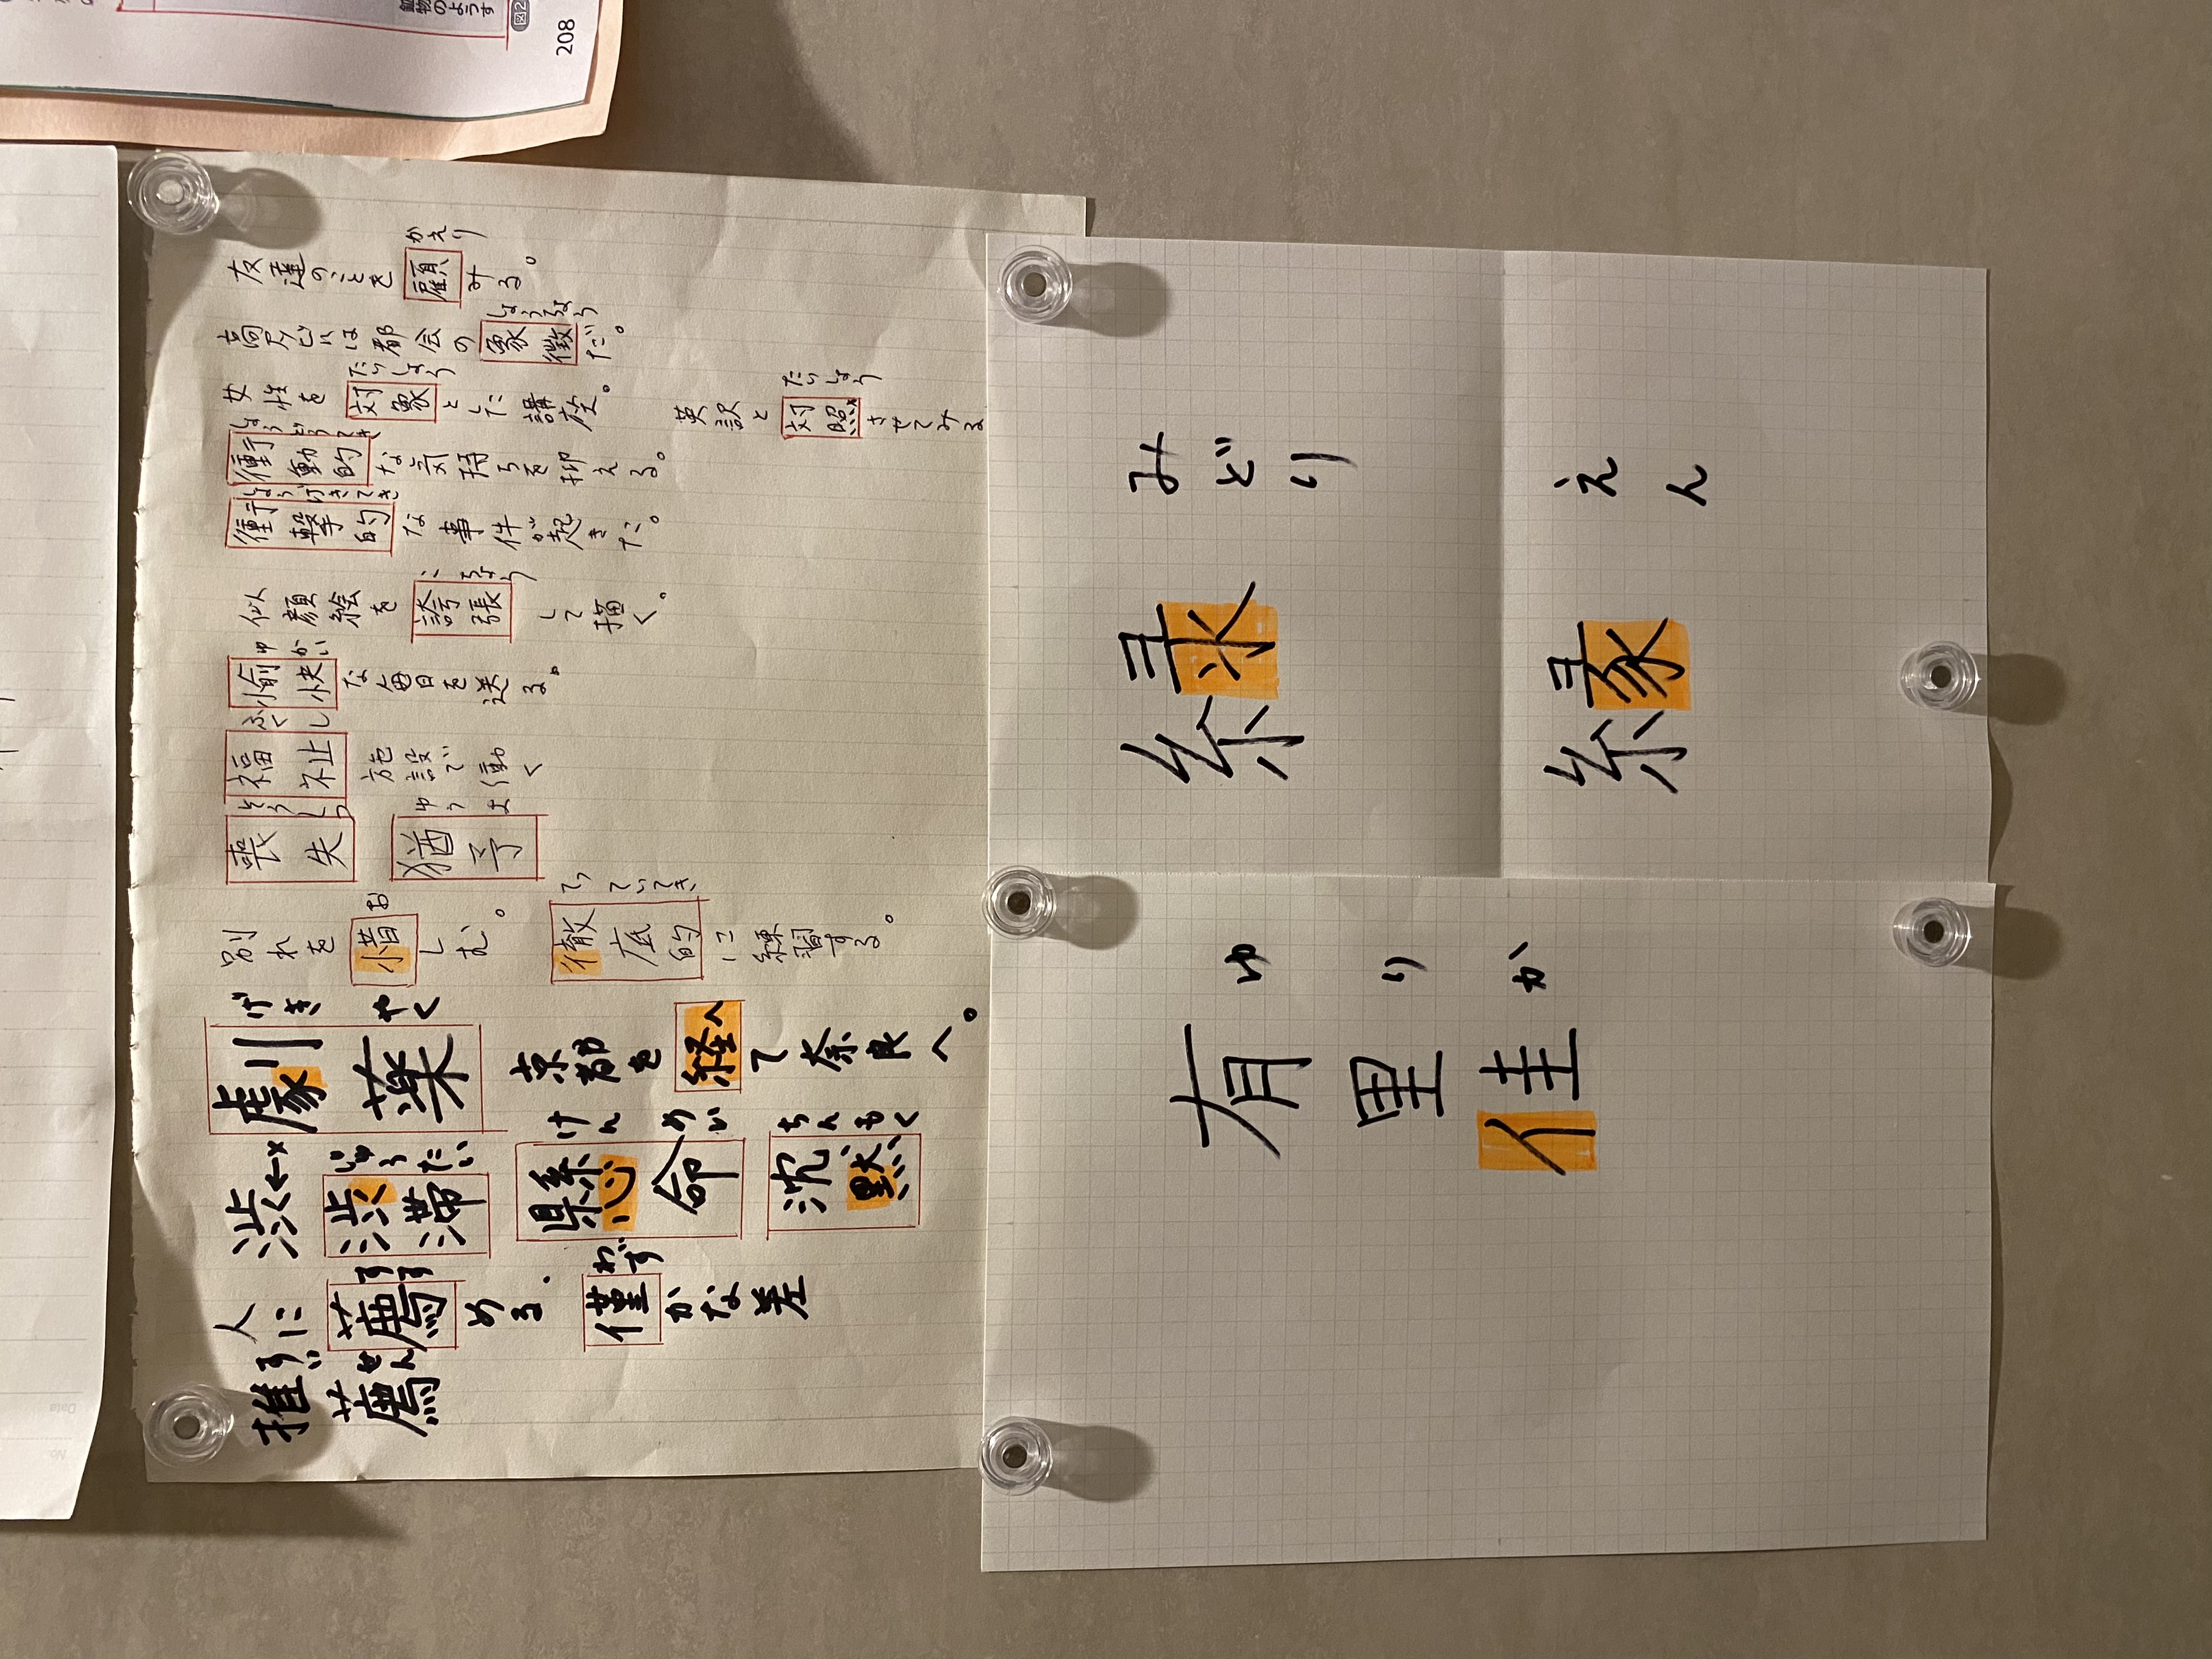 鉱物のようす
図2
208
かえり
友達のことを顧みる。
しょうちょう
高層ビルは都会の象徴だ。
たいしょう
女性を対象とした講座。
たいしょう
英訳と対照させてみる
しょうどうてき
衝動的な気持ちを抑える。
しょうげきてき
衝撃的な事件が起きた。
こちょう
似顔絵を誇張して描く。
ゆかい
愉快な毎日を送る。
ふくし
福祉施設で働く
そうしつ
喪失
ゆうよ
猶予
お
別れを惜しむ。
てっていてき
徹底的に練習する。
げきやく
劇薬
へ
京都を経て奈良へ。
渋←×
じゅうたい
渋滞
けんめい
懸命
ちんもく
沈黙
すす
人に薦める.
わず
僅かな差
すいせん
推薦
みどり
緑
えん
縁
ゆりか
有里佳